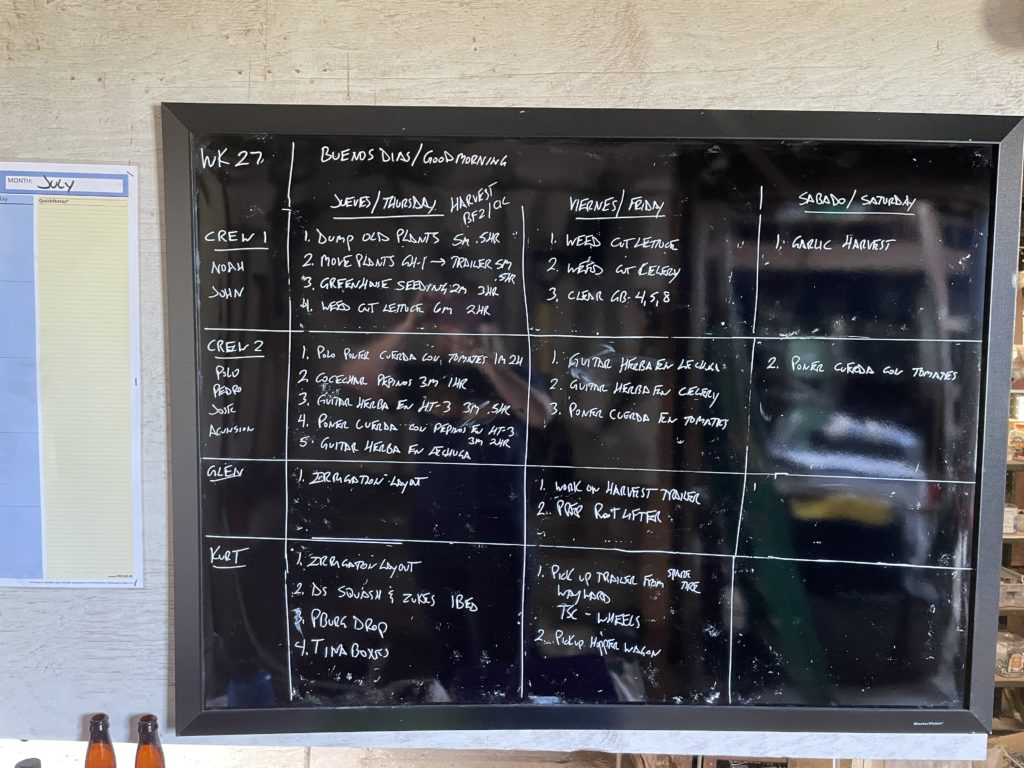 MONTH: JULY
QuickNotes®
WK 27
BUENOS DIAS/GOOD MORNING
JUEVES/THURSDAY
HARVEST
VIERNES/FRIDAY
SABADO/SATURDAY
CREW 1
NOAH
JOHN
1. DUMP OLD PLANTS 5M .5HR
2. MOVE PLANTS GH-1 → TRAILER 5M
.5HR
3. GREENHOUSE SEEDING 2M 2HR
4. WEED CUT LETTUCE 6M 2HR
1. WEED CUT LETTUCE
2. WEED CUT CELERY
3. CLEAR GB. 4, 5, 8
1. GARLIC HARVEST
CREW 2
POLO
PEDRO
JOSE
ACUNSION
1. POLO PONER CUERDA CON TOMATES 1M 2H
2. COCECHAR PEPINOS 3M 1HR
3. GUITAR HERBA EN HT-3 3M .5HR
4. PONER CUERDA CON PEPINOS EN HT-3
3M 2HR
5. GUITAR HERBA EN LECHUGA
1. GUITAR HERBA EN LECHUGA
2. GUITAR HERBA EN CELERY
3. PONER CUERDA EN TOMATES
2. PONER CUERDA CON TOMATES
GLEN
1. IRRIGATION LAYOUT
1. WORK ON HARVEST TRAILER
2. PREP ROOT LIFTER
KURT
1. IRRIGATION LAYOUT
2. DS SQUASH & ZUKES 1BED
3. PBURG DROP
4. TINA BOXES
1. PICK UP TRAILER FROM SPARE TIRE
WAYWARD
TSC - WHEELS
2. PICKUP HOPPER WAGON
MasterVision